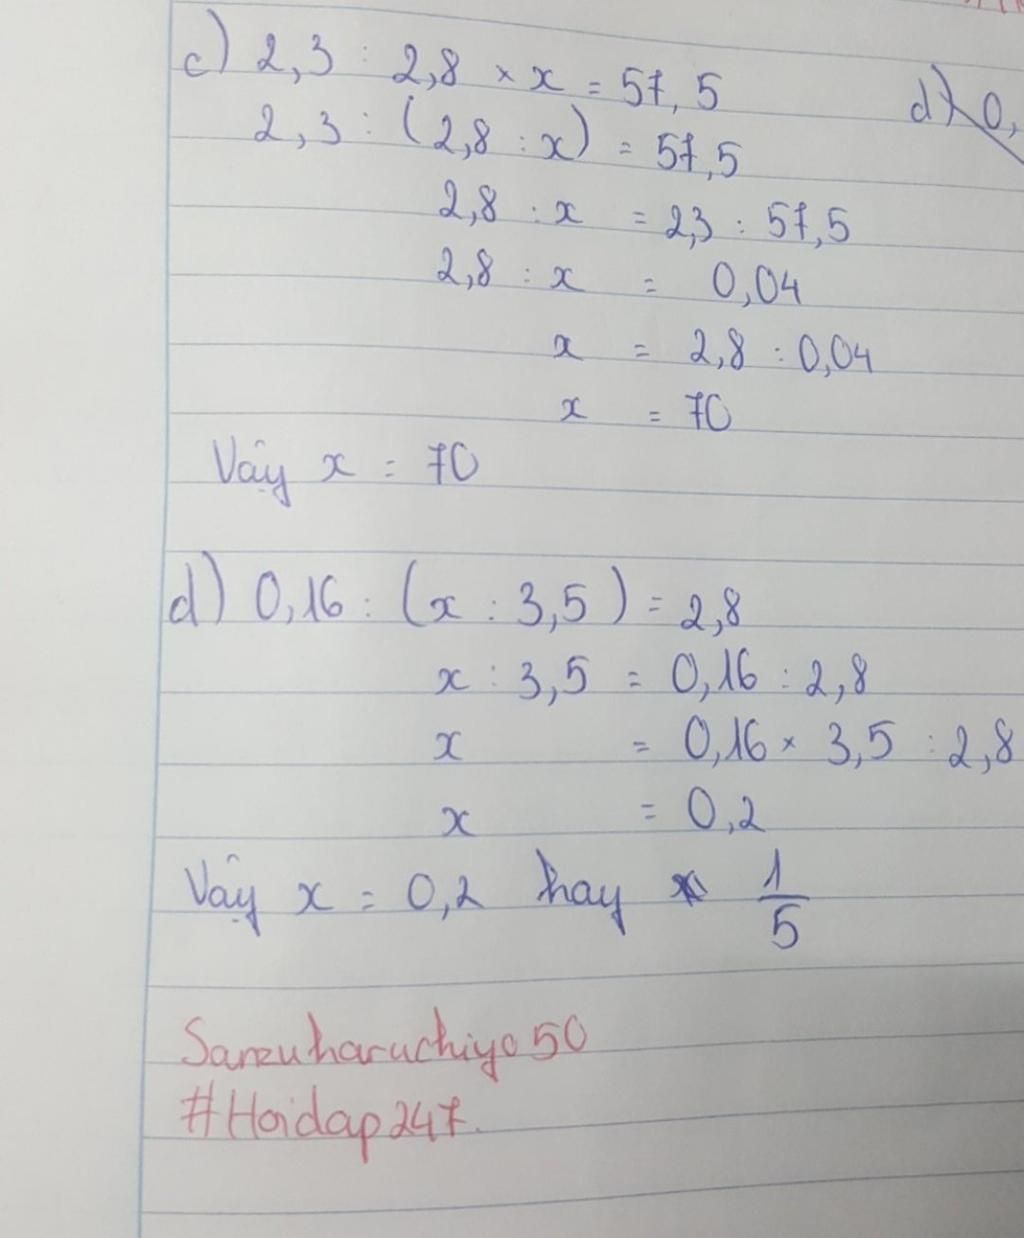 c) 2,3 : 2,8 × x = 57,5
d) 0,
2,3 : (2,8 : x) = 57,5
2,8 : x = 2,3 : 57,5
2,8 : x = 0,04
x = 2,8 : 0,04
x = 70
Vậy x = 70
d) 0,16 : (x : 3,5) = 2,8
x : 3,5 = 0,16 : 2,8
x = 0,16 × 3,5 : 2,8
x = 0,2
Vậy x = 0,2 hay 1/5
Sanzuharuchiyo50
#Hoidap247.